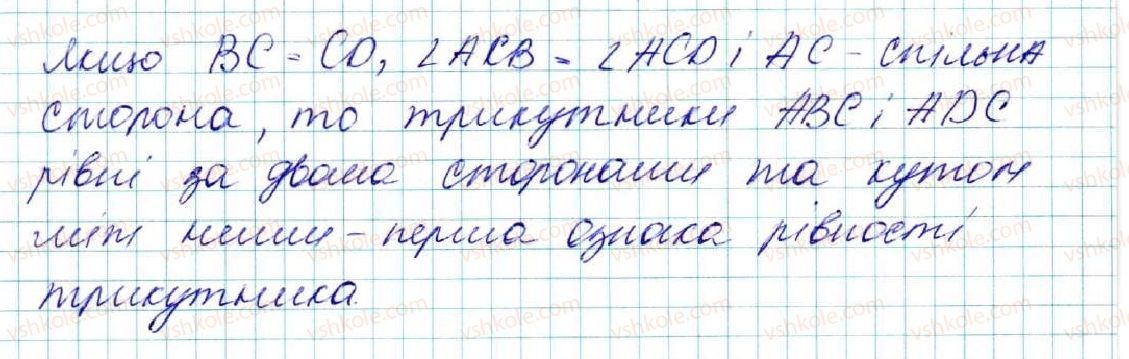 Якщо BC = CD, ∠ACB = ∠ACD і AC - спільна
сторона, то трикутники ABC і ADC
рівні за двома сторонами та кутом
між ними - перша ознака рівності
трикутника.